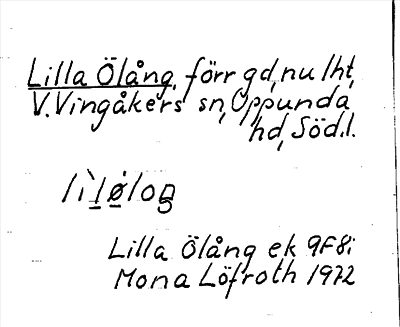 Lilla Ölång, förr gd, nu lht,
V. Vingåkers sn, Oppunda
hd, Söd.l.
lìløloŋ
Lilla Ölång ek 9F8i
Mona Löfroth 1972